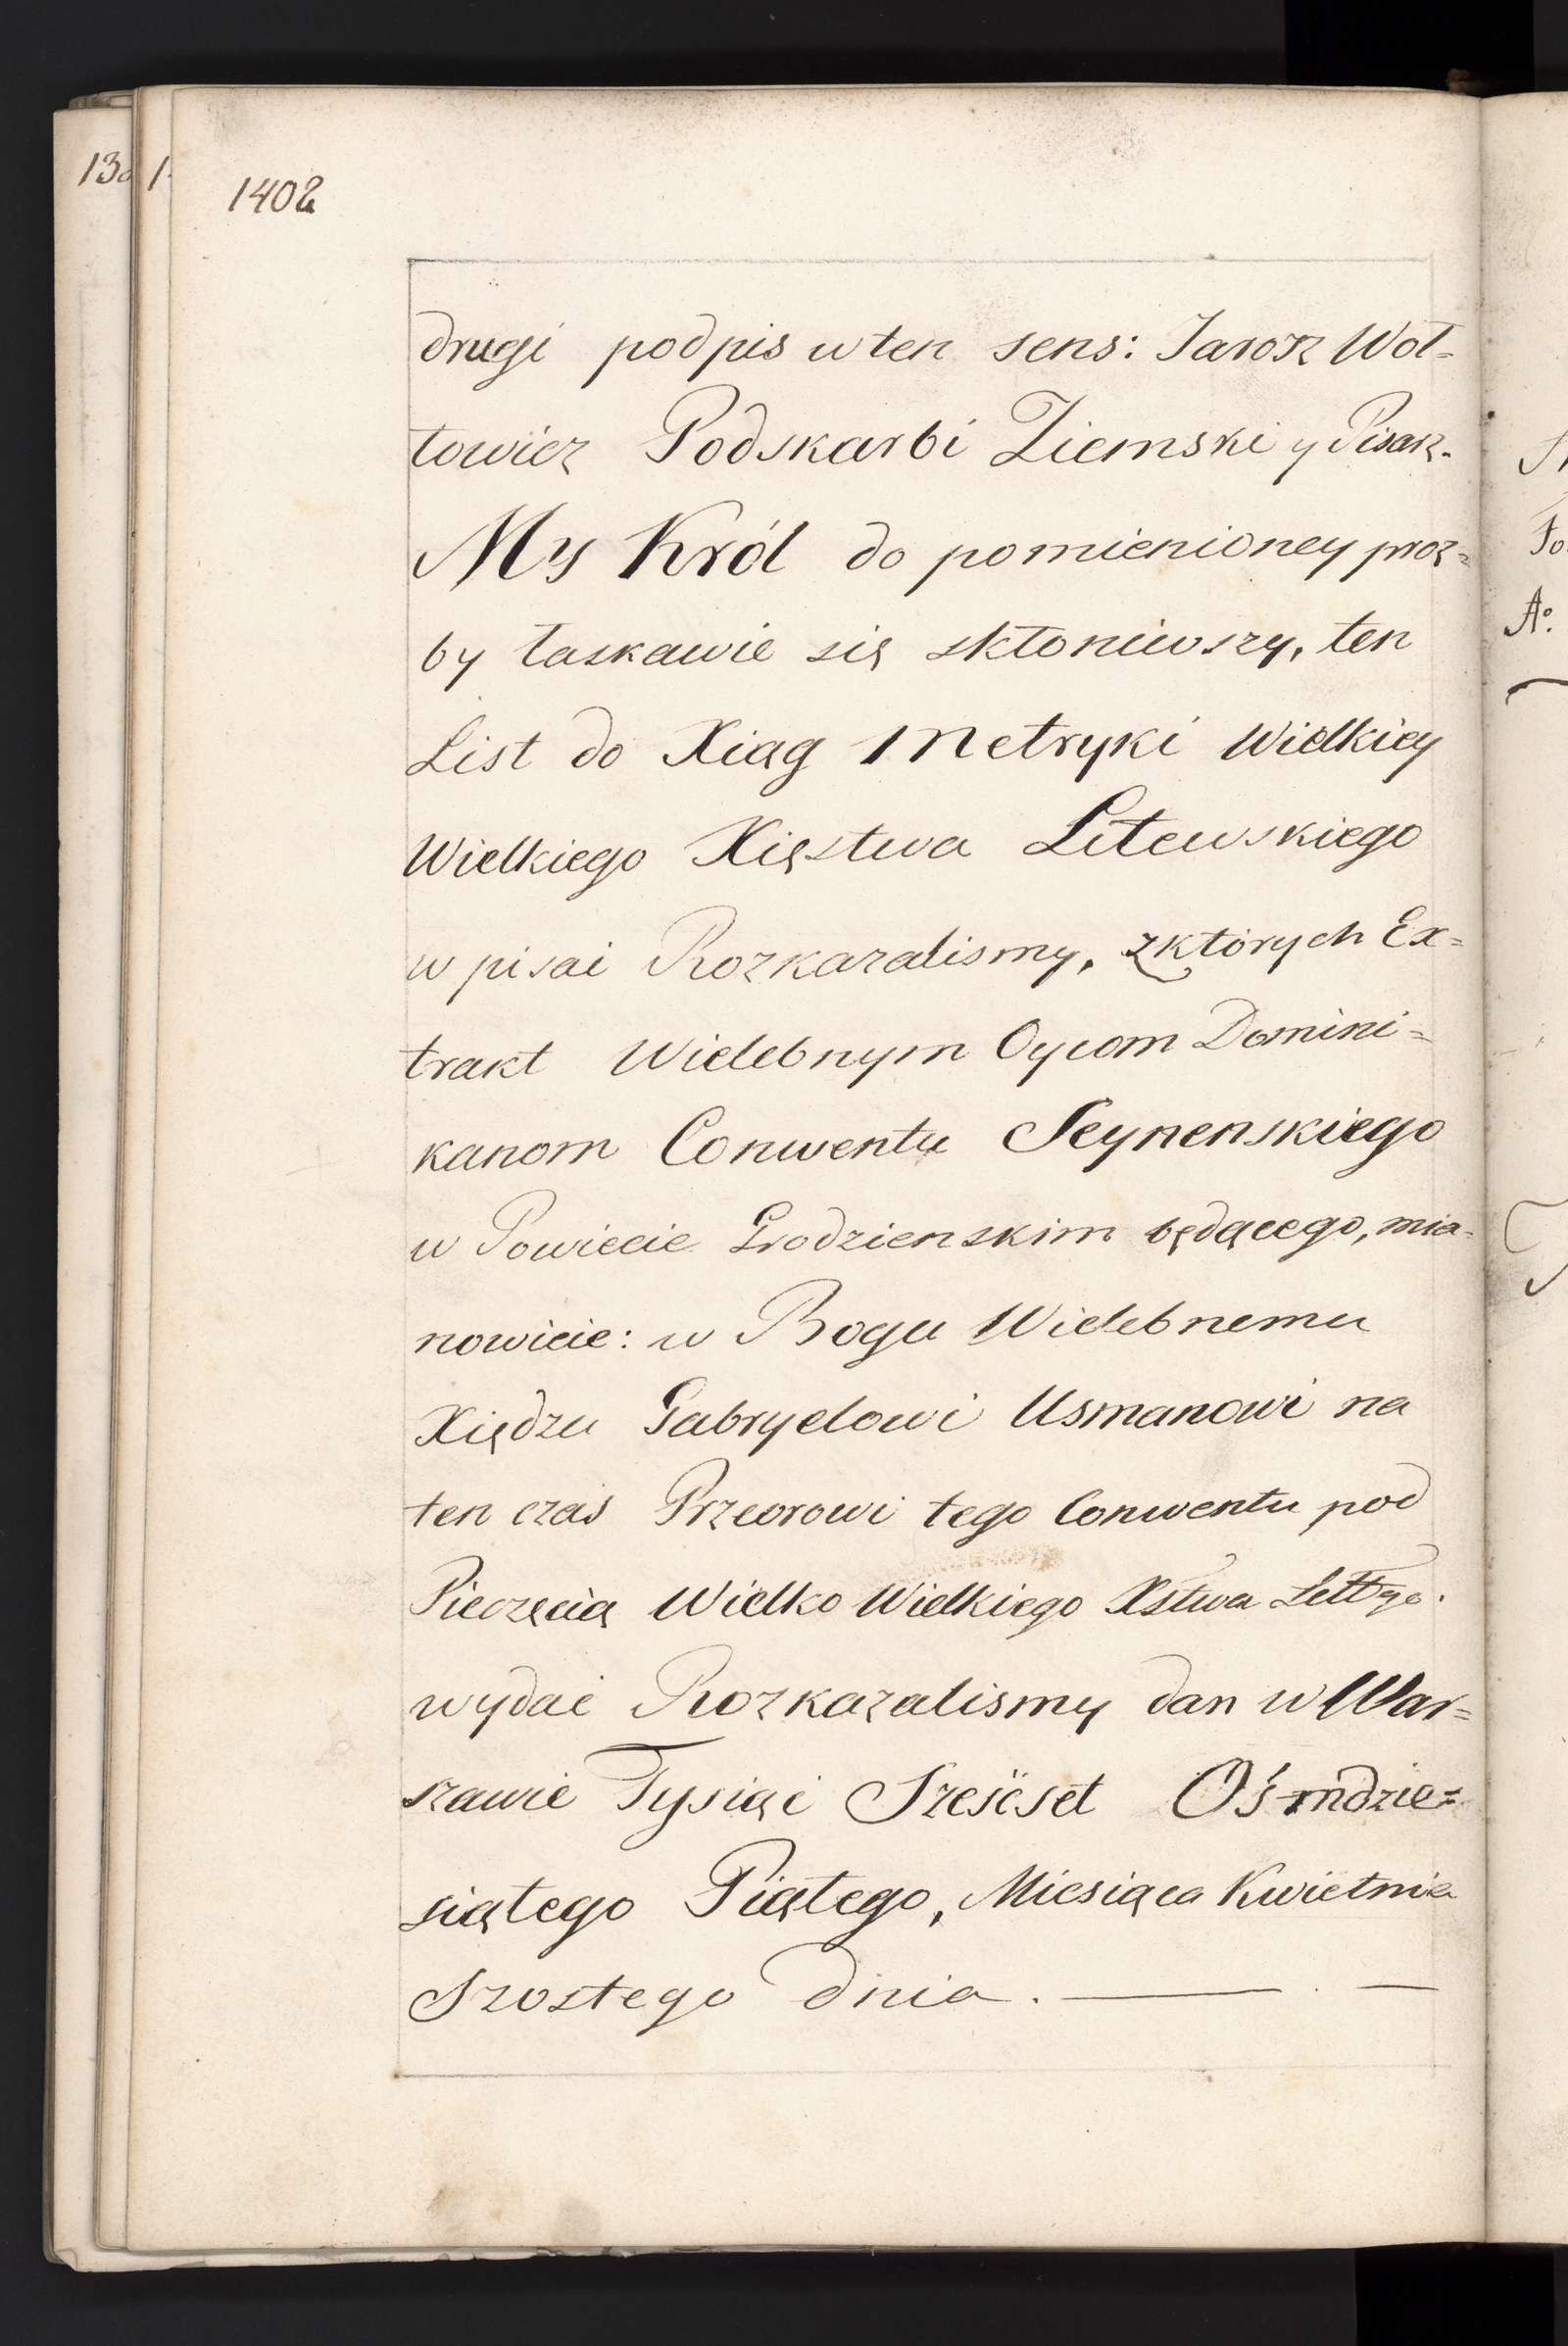 1402
drugi podpis w ten sens: Jarosz Woł=
łowicz Podskarbi Ziemski y Pisarz.
My Król do pomienioney proz=
by łaskawie się skłoniwszy, ten
List do Xiąg Metryki Wielkiey
Wielkiego Xięstwa Litewskiego
wpisai Rozkazalismy, zktórych Ex=
trakt Wielebnym Oycom Domini=
kanom Conwentu Seynenskiego
w Powiecie Grodzienskim będącego, mia=
nowicie: w Bogu Wielebnemu
Xiędzu Gabryelowi Usmanowi na
ten czas Przeorowi tego Conwentu pod
Pieczęcią Wielko Wielkiego Xstwa Littgo.
wydać Rozkazalismy dan w War=
szawie Tysiąć Sześćset Óśmdzie=
siątego Piątego, Miesiąca Kwietnia
Szostego dnia.